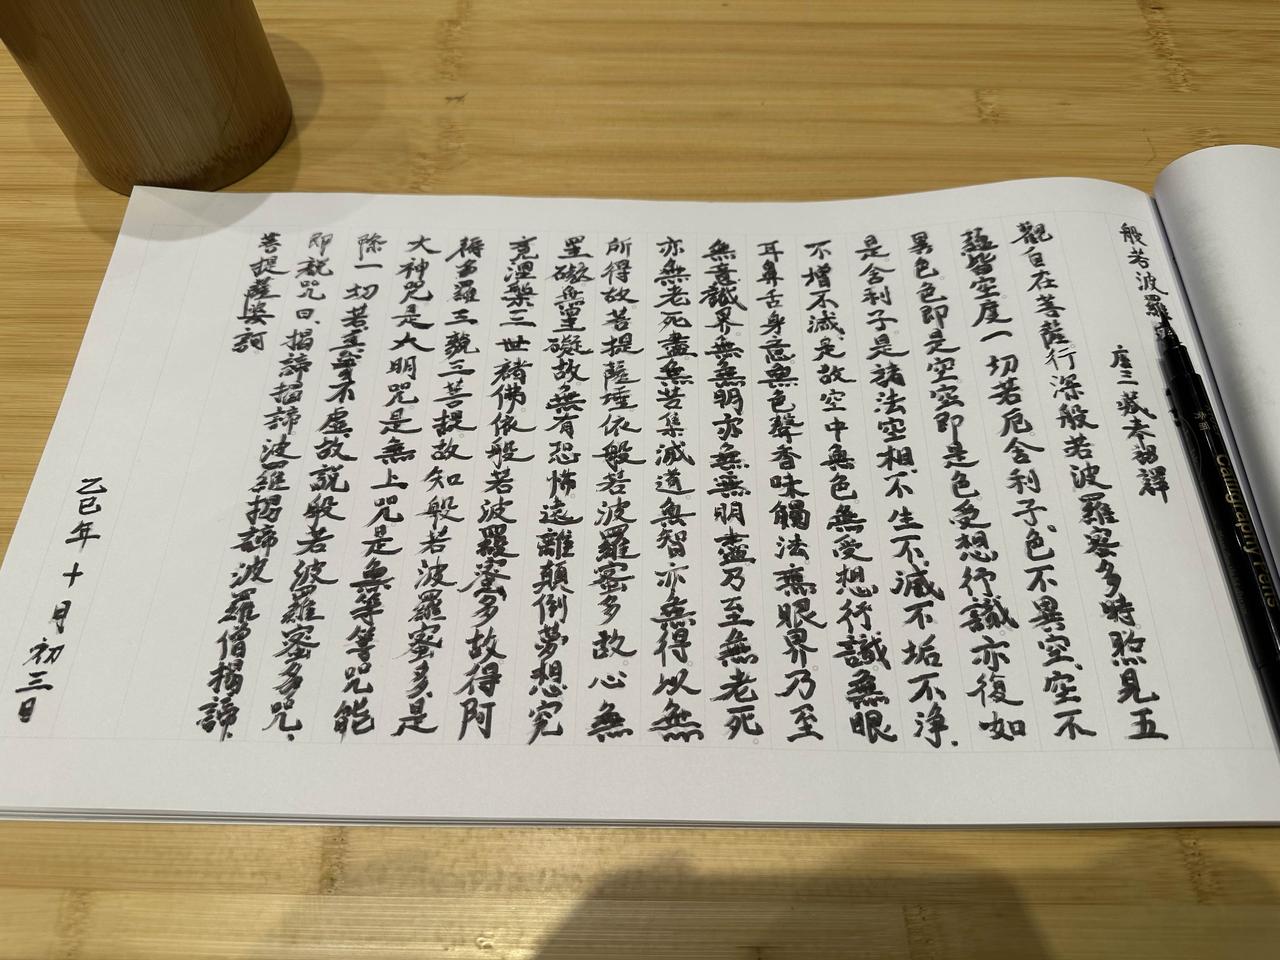 般若波羅
唐三藏奉詔譯
觀自在菩薩行深般若波羅蜜多時照見五
蘊皆空度一切若厄舍利子色不異空、空不
異色色即是空空即是色受想行識亦復如
是舍利子是諸法空相不生不滅不垢不净.
不增不減是故空中無色無受想行識無眼
耳鼻舌身意無色聲香味觸法無眼界乃至
無意識界無無明亦無無明盡乃至無老死
亦無老死盡無苦集滅道無智亦無得以無
所得故菩提薩埵依般若波羅蜜多故心無
罣礙無罣礙故無有恐怖遠離顛倒夢想究
竟涅槃三世諸佛依般若波羅蜜多故得阿
耨多羅三藐三菩提故知般若波羅蜜多是
大神咒是大明咒是無上咒是無等等咒能
除一切若 不虛故説般若波羅蜜多咒、
即説咒曰、揭諦揭諦波羅揭諦波羅僧揭諦、
菩提薩婆訶
乙巳年十月初三日
Calligraphy Pens